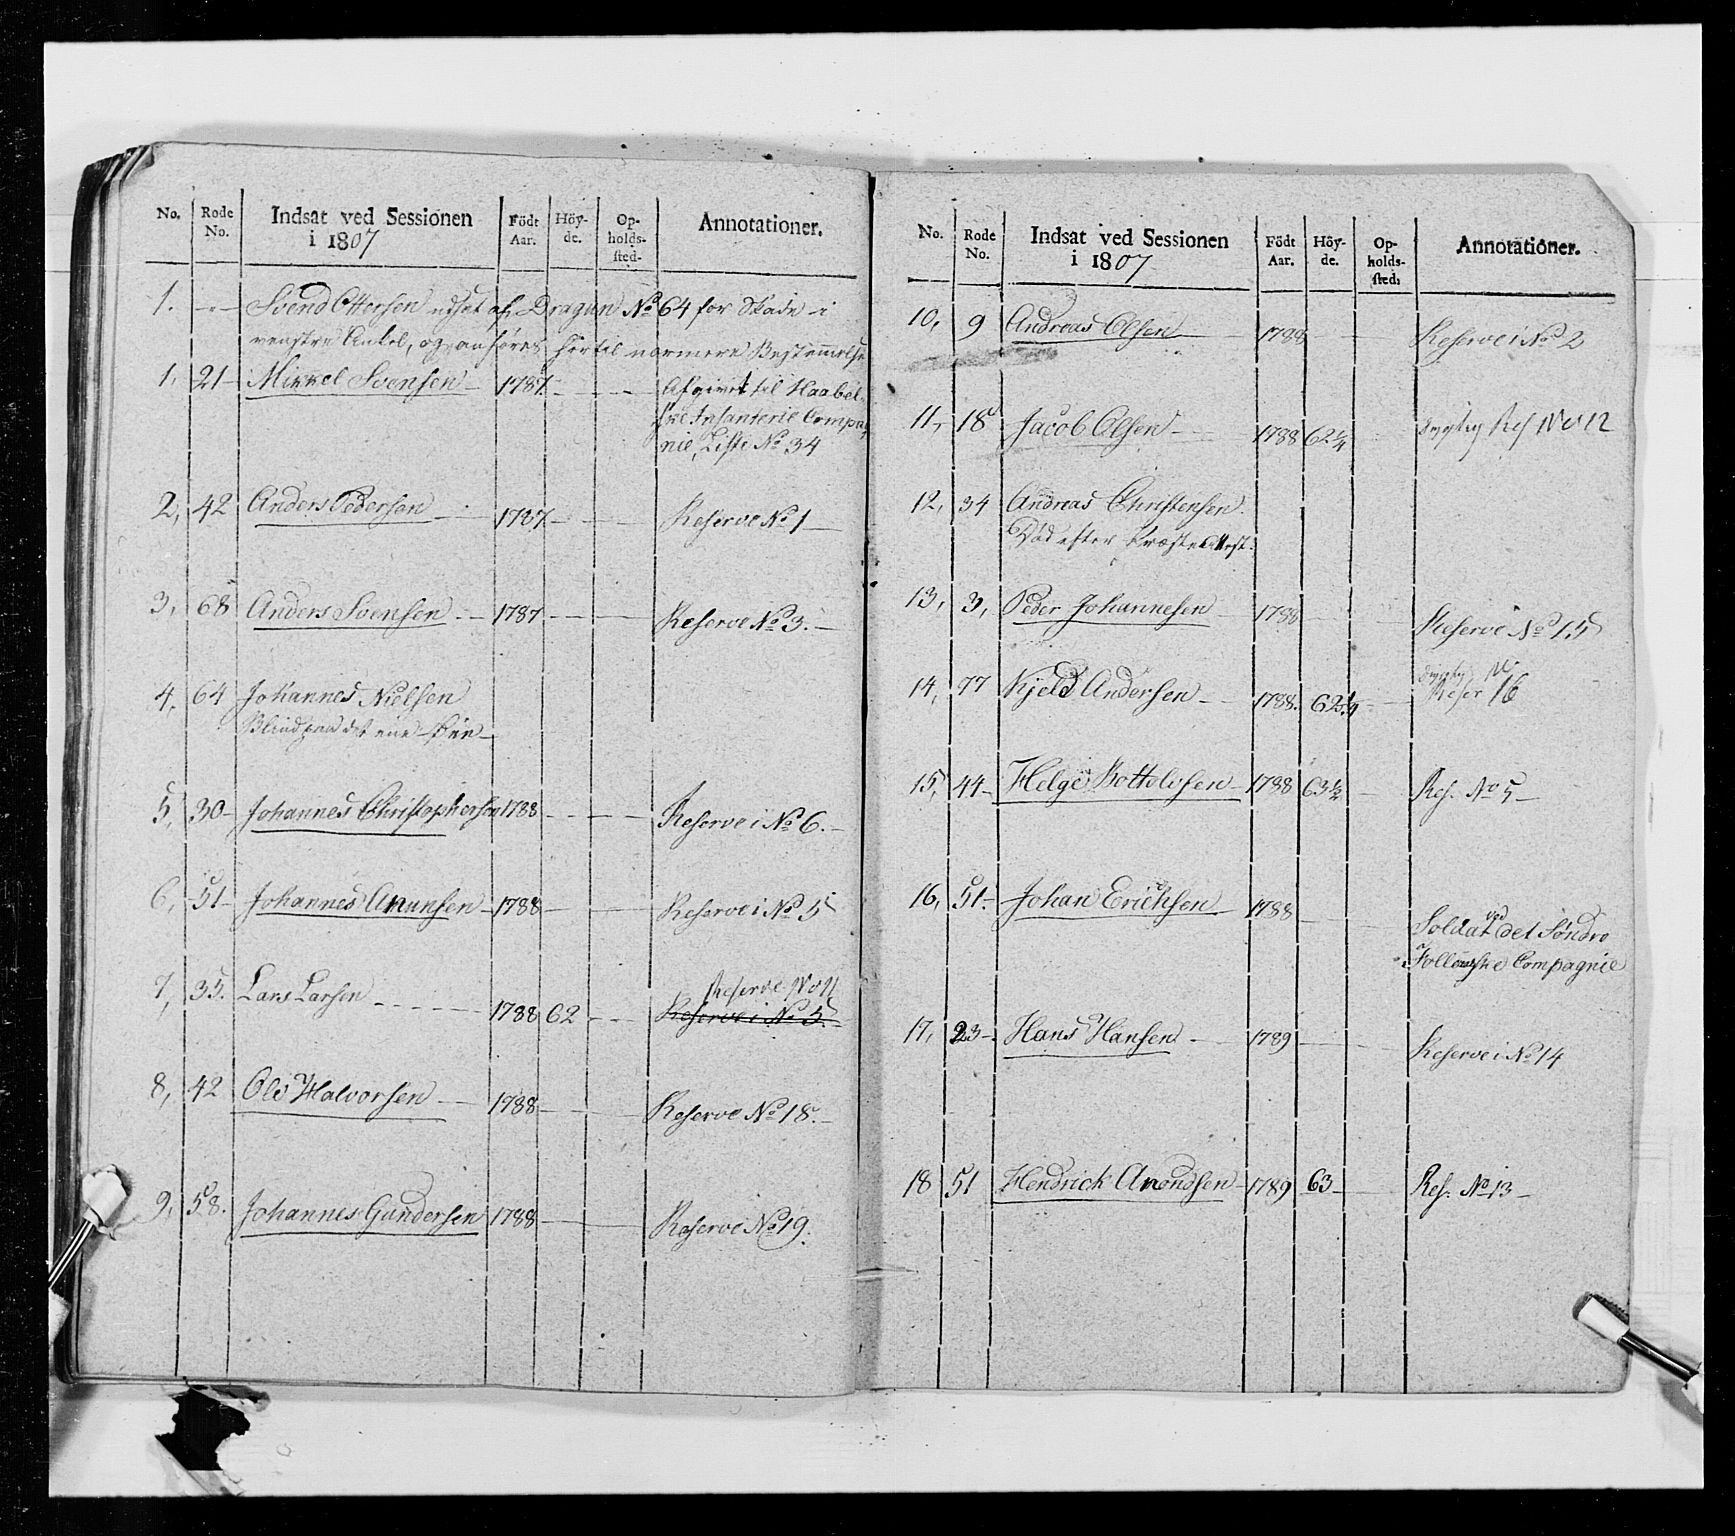 No. Rode No. Indsat ved Sessionen i 1807 Födt Aar. Höy-de. Op-holds-sted. Annotationer.
1. -"- Svend Ottersen udsat af Dragun No 64 for Skade i
venstre Ankel, og anføres her til nærmere Bestemmelse
1, 21 - Mikkel Svensen - 1787 - - - Afgivet til Haabel-
ske Infanterie Compag-
nie, Liste No 34
2, 42 Anders Pedersen - 1787 - - Reserve No 1 -
3, 68 Anders Svensen - 1787 - - - Reserve No 3. -
4, 64 Johannes Nielsen
Blind paa det eene Øie -
5, 30 - Johannes Christophersen 1788 - - - Reserve i No 6. -
6, 51 - Johannes Amunsen - 1788 - - Reserve i No 5
Reserve No 11
7, 35. Lars Larsen - - - - 1788 62 - - Reserve i No 5
8, 42 Ole Halvorsen - 1788 - - Reserve No 18. -
9, 58. Johannes Gundersen 1788 - - Reserve No 19.
No. Rode No. Indsat ved Sessionen i 1807 Födt Aar. Höy-de. Op-holds-sted. Annotationer.
10, 9 Andreas Olsen - 1788 - - Reserve i No 2
11, 18 Jacob Olsen - 1788 62 1/4 dygtig Res No 12
12, 34 Andreas Christensen.
Død efter Præste Attest.
13, 3, Peder Johannesen 1788 - Reserve No 15
dygtig No
14, 77 Kjeld Andersen - 1788. 62 1/4 - Reser 16
15, 44 - Helge Bottolvsen - 1788 63 1/2 - Res. No 5 -
16, 51. - Johan Erichsen 1788 - -
Soldat ved det Søndre
Follougske Compagnie
17, 23 - Hans Hansen - 1789 - - Reserve i No 14
18 51 Hendrick Amondsen - 1789 63 - Res. No 13 -